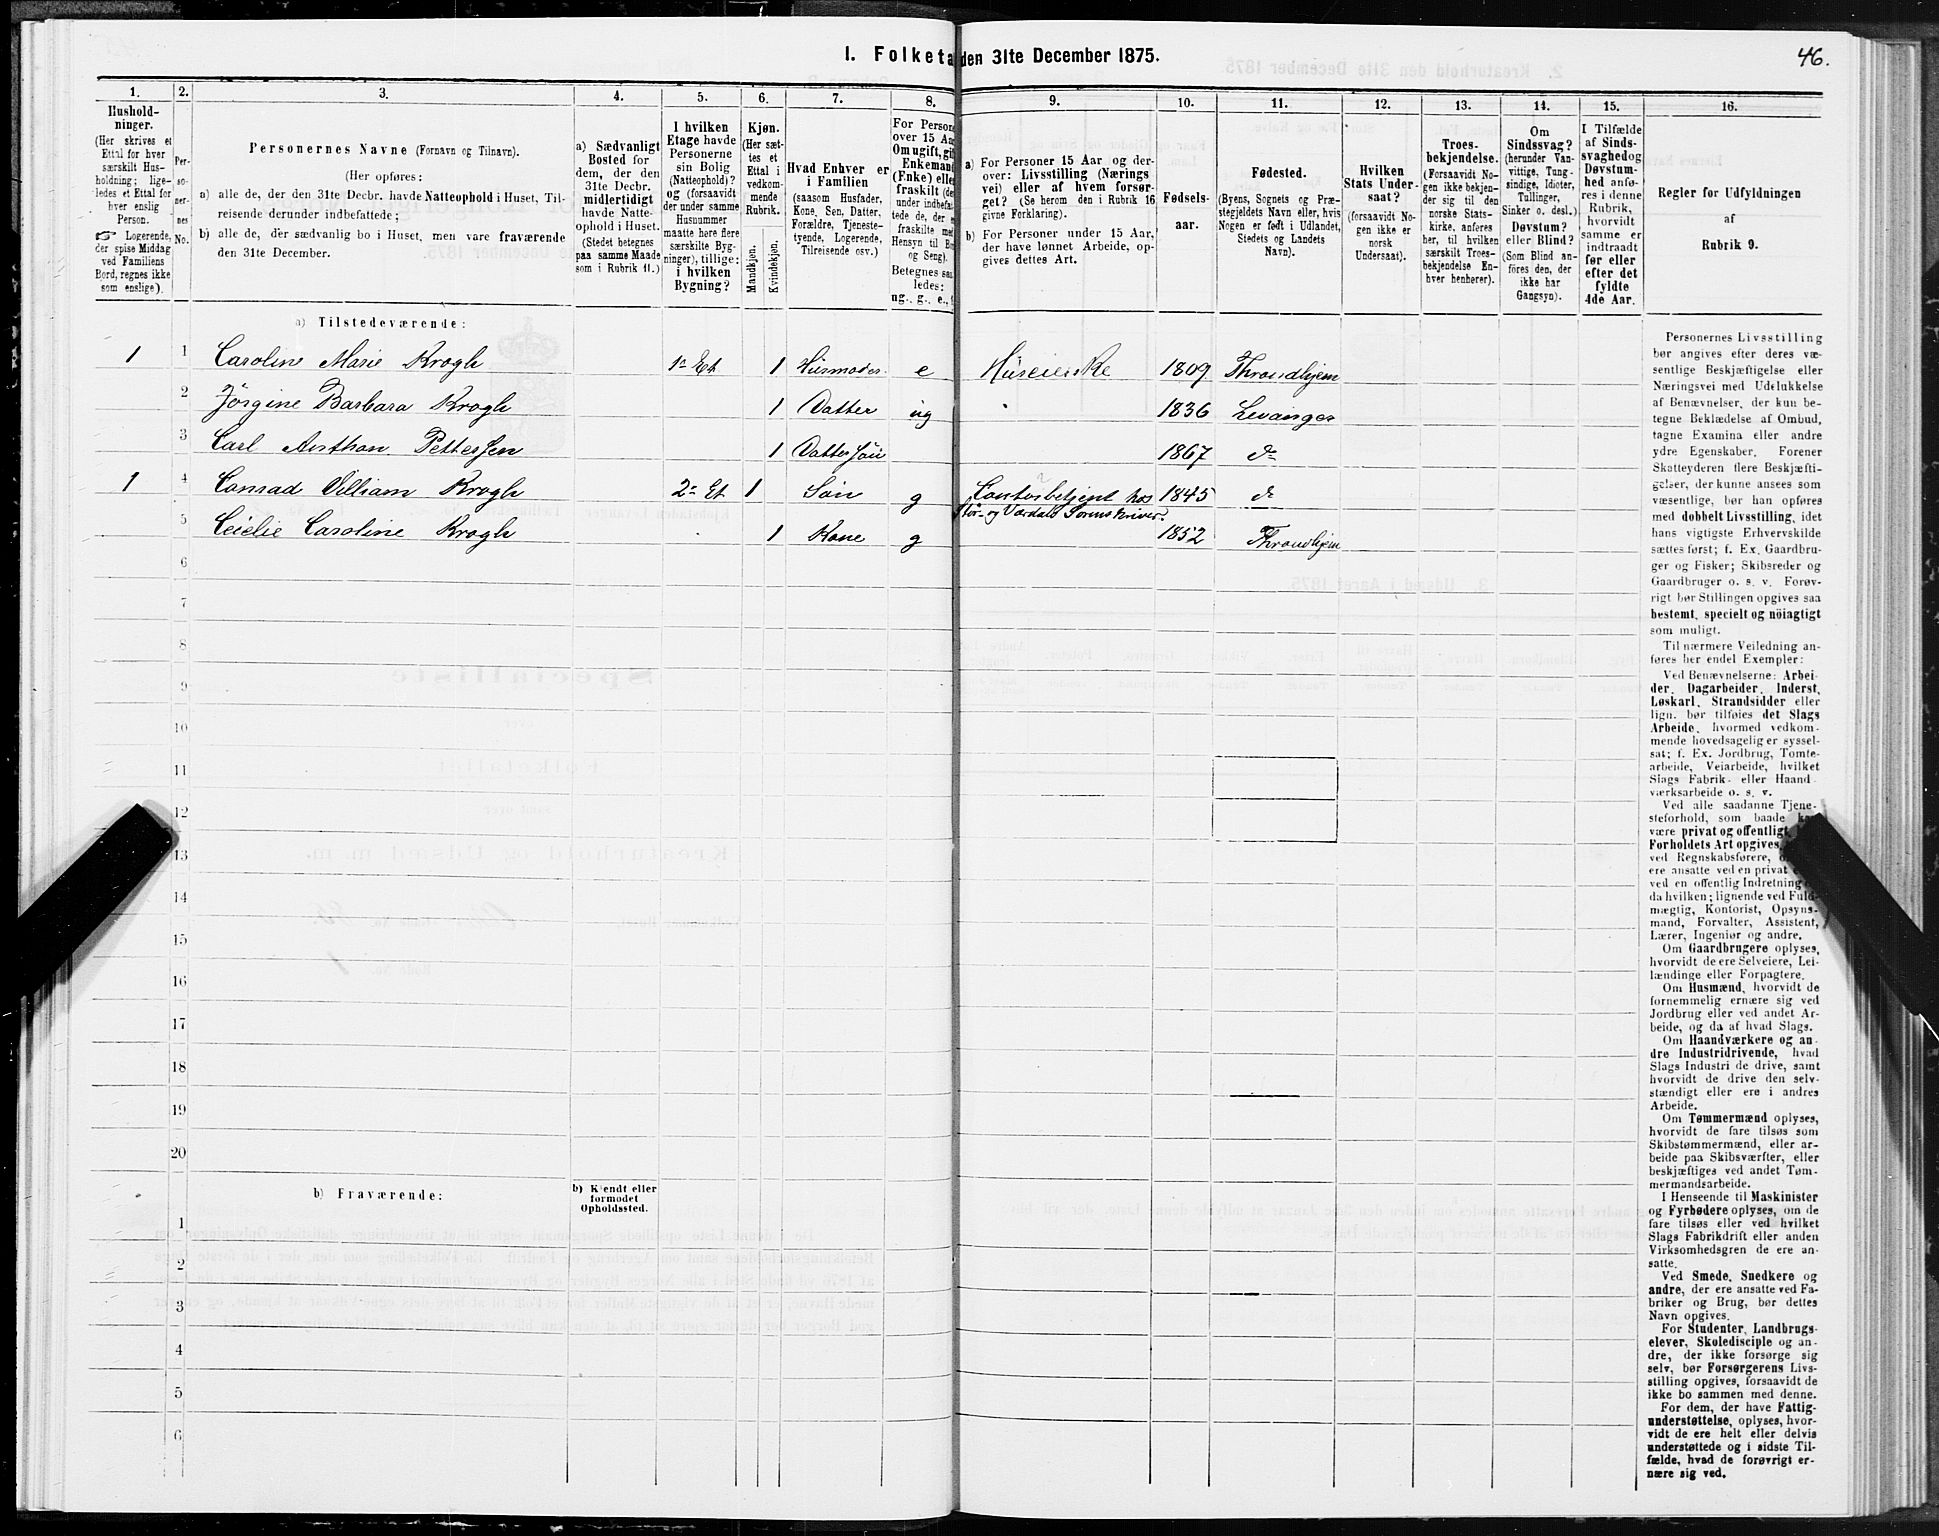 46.
I. Folketa den 31te December 1875.
1. 2. 3. 4. 5. 6. 7. 8. 9. 10. 11. 12. 13. 14. 15. 16.
Hushold-
ninger.
(Her skrives et
Ettal for hver
særskilt Hus-
holdning; lige-
ledes et Ettal for
hver enslig
Person.
☞ Logerende,
der spise Middag
ved Familiens
Bord, regnes ikke
som enslige).
Per-
so-
ner-
nes
No.
Personernes Navne (Fornavn og Tilnavn).
(Her opføres:
a) alle de, der den 31te Decbr. havde Natteophold i Huset, Til-
reisende derunder indbefattede;
b) alle de, der sædvanlig bo i Huset, men vare fraværende
den 31te December.
a) Sædvanligt
Bosted for
dem, der den
31te Decbr.
midlertidigt
havde Natte-
ophold i Huset.
(Stedet betegnes
paa samme Maade
som i Rubrik 11.)
I hvilken
Etage havde
Personerne
sin Bolig
(Natteophold)?
og (forsaavidt
der under samme
Husnummer
maatte høre flere
særskilte Byg-
ninger), tillige:
i hvilken
Bygning?
Kjøn.
(Her sæt-
tes et
Ettal i
vedkom-
mende
Rubrik.
Mandkjøn.
Kvindekjøn.
Hvad Enhver er
i Familien
(saasom Husfader,
Kone, Søn, Datter,
Forældre, Tjeneste-
tyende, Logerende,
Tilreisende osv.)
For Person
over 15 Aa
Om ugift, gif
Enkemand
(Enke) elle
fraskilt (de
under indbefat
tede de, der
fraskilte med
Hensyn til Bo
og Seng).
Betegnes saa
ledes:
ug., g., e.,
a) For Personer 15 Aar og der-
over: Livsstilling (Nærings
vei) eller af hvem forsør-
get? (Se herom den i Rubrik 16
givne Forklaring).
b) For Personer under 15 Aar,
der have lønnet Arbeide, op-
gives dettes Art.
Fødsels-
aar.
Fødested.
(Byens, Sognets og Præ-
stegjeldets Navn eller, hvis
Nogen er født i Udlandet,
Stedets og Landets
Navn).
Hvilken
Stats Under-
saat?
(forsaavidt No-
gen ikke er
norsk
Undersaat).
Troes-
bekjendelse.
(Forsaavidt No-
gen ikke bekjen-
der sig til den
norske Stats-
kirke, anføres
her, til hvilken
særskilt Troes-
bekjendelse En-
hver henhører).
Om
Sindssvag?
(herunder Van-
vittige, Tung-
sindige, Idioter,
Tullinger,
Sinker o. desl.)
Døvstum?
eller Blind?
(Som Blind an-
føres den, der
ikke har
Gangsyn).
I Tilfælde
af Sinds-
svaghedog
Døvstum-
hed anfø-
res i denne
Rubrik,
hvorvidt
samme er
indtraadt
før eller
efter det
fyldte
4de Aar.
Regler for Udfyldningen
af
Rubrik 9.
a) Tilstedeværende:
1 1 Caroline Marie Krogh 1ᵉ Et 1 Husmoder e Huseierske 1809 Throndhjem
2 Jørgine Barbara Krogh 1 Datter ug 1836 Levanger
3 Carl Anthon Pettersen 1 Datter Søn 1867 do
1 4 Conrad Villiam Krogh 2ᵉ Et 1 Søn g Contorbetjent hos 1845 do
Stør- og Værdals Sorenskriver.
5 Cecilie Caroline Krogh 1 Kone g 1852 Throndhjem
6
7
8
9
10
11
12
13
14
15
16
17
18
19
20
b) Fraværende:
b) Kjendt eller
formodet
Opholdssted.
1
2
3
4
5
6
Personernes Livsstilling
bør angives efter deres væ-
sentlige Beskjæftigelse eller
Næringsvei med Udelukkelse
af Benævnelser, der kun be-
tegne Beklædelse af Ombud,
tagne Examina eller andre
ydre Egenskaber. Forener
Skatteyderen flere Beskjæfti-
gelser, der kunne ansees som
væsentlige, bør han opføres
med dobbelt Livsstilling, idet
hans vigtigste Erhvervskilde
sættes først; f. Ex. Gaardbru-
ger og Fisker; Skibsreder og
Gaardbruger o. s. v. Forøv-
rigt bør Stillingen opgives saa
bestemt, specielt og nöiagtigt
som muligt.
Til nærmere Veiledning an-
føres her endel Exempler:
Ved Benævnelserne: Arbei-
der, Dagarbeider, Inderst,
Løskarl, Strandsidder eller
lign. bør tilføies det Slags
Arbeide, hvormed vedkom-
mende hovedsagelig er syssel-
sat; f. Ex. Jordbrug, Tomte-
arbeide, Veiarbeide, hvilket
Slags Fabrik- eller Haand-
værksarbeide o. s. v.
Ved alle saadanne Tjene-
steforhold, som baade
være privat og offentligt,
Forholdets Art opgives,
ved Regnskabsførere,
ere ansatte ved en privat
ved en offentlig Indretning
da hvilken; lignende ved Fuld-
mægtig, Kontorist, Opsyns-
mand, Forvalter, Assistent,
Lærer, Ingeniør og andre.
Om Gaardbrugere oplyses,
hvorvidt de ere Selveiere, Lei-
lændinge eller Forpagtere.
Om Husmænd, hvorvidt de
fornemmelig ernære sig ved
Jordbrug eller ved andet Ar-
beide, og da af hvad Slags.
Om Haandværkere og an-
dre Industridrivende, hvad
Slags Industri de drive, samt
hvorvidt de drive den selv-
stændigt eller ere i andres
Arbeide.
Om Tømmermænd oplyses,
hvorvidt de fare tilsøs som
Skibstømmermænd, eller ar-
beide paa Skibsværfter, eller
beskjæftiges ved andet Tøm-
mermandsarbeide.
I Henseende til Maskinister
og Fyrbødere oplyses, om de
fare tilsøs eller ved hvilket
Slags Fabrikdrift eller anden
Virksomhedsgren de ere an-
satte.
Ved Smede, Snedkere og
andre, der ere ansatte ved Fa-
briker og Brug, bør dettes
Navn opgives.
For Studenter, Landbrugs-
elever, Skoledisciple og an-
dre, der ikke forsørge sig
selv, bør Forsørgerens Livs-
stilling opgives, forsaavidt de
ikke bo sammen med denne.
For dem, der have Fattig-
understøttelse, oplyses, hvor-
vidt de ere helt eller delvis
understøttede og i sidste Til-
fælde, hvad de forøvrigt er-
nære sig ved.